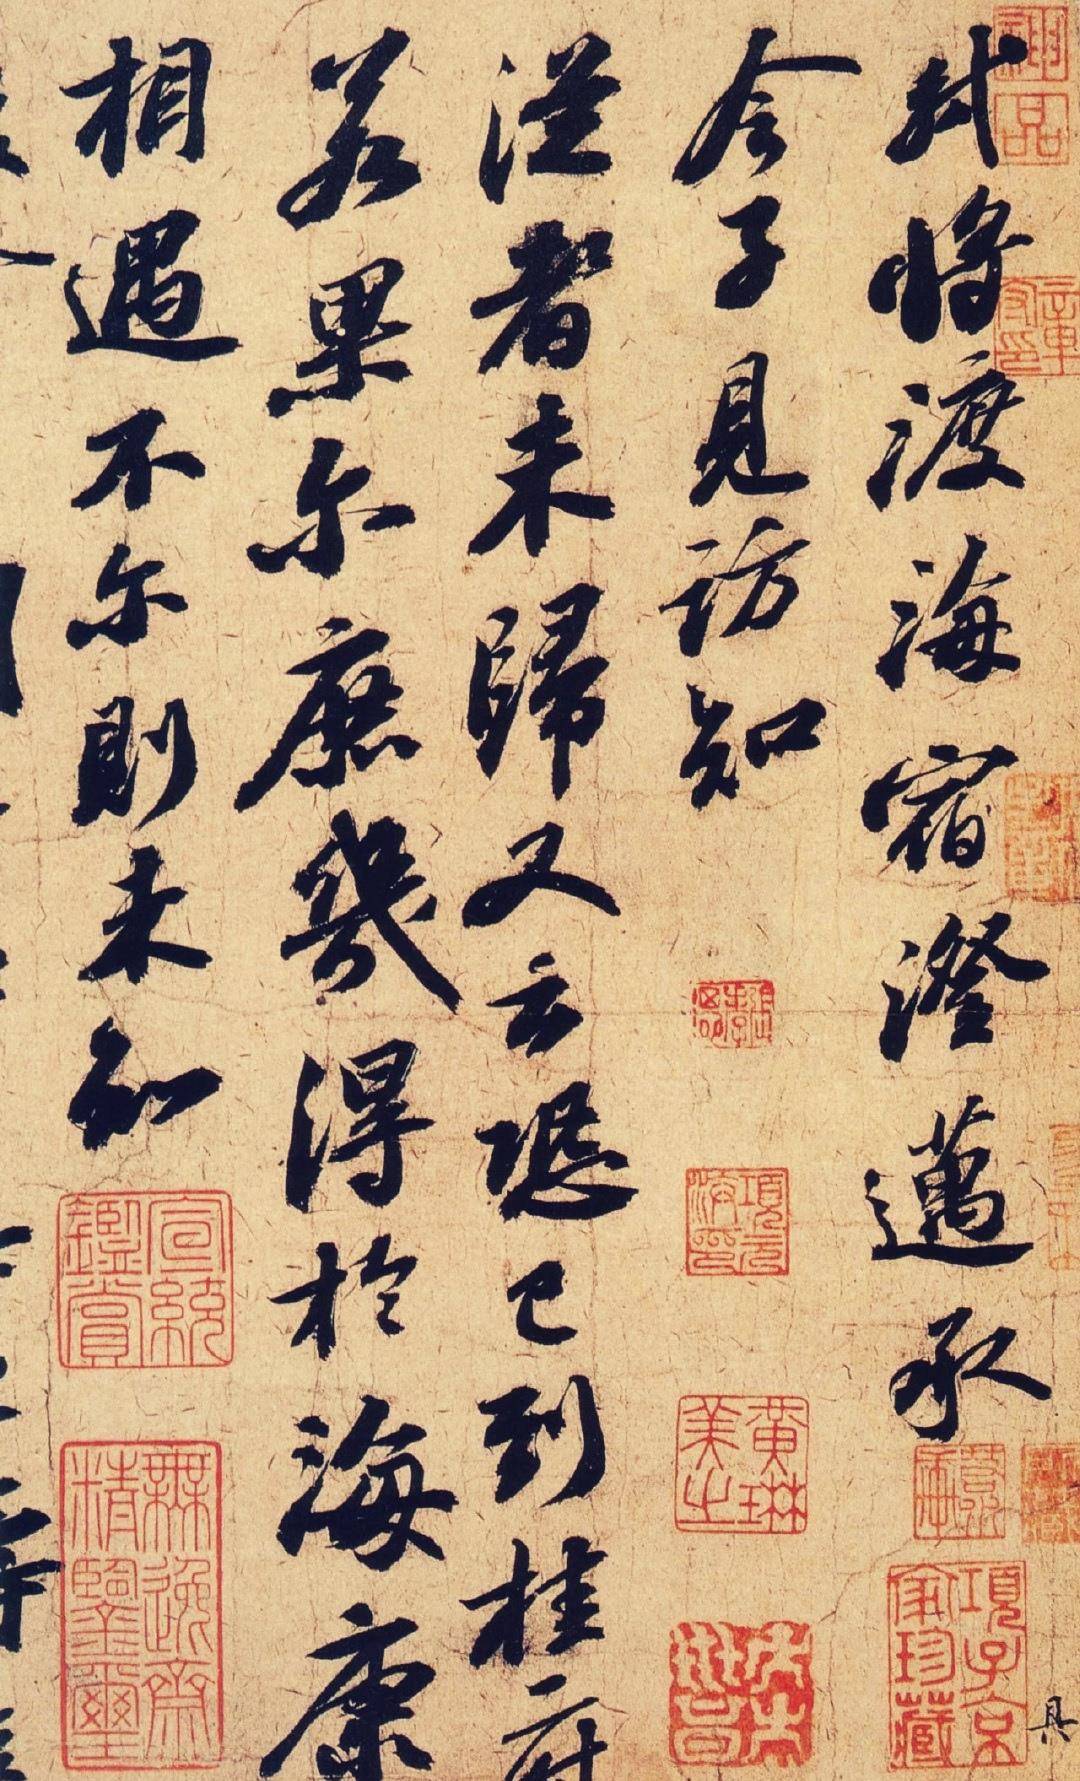 軾將渡海宿澄邁承
令子見訪知
從者未歸又云恐已到桂府
若果尔庶幾得於海康
相遇不尔則未知
神品
張孝思
項元汴印
黃琳美之
項子京家珍藏
宣統鑑賞
無逸齋精鑒璽
具